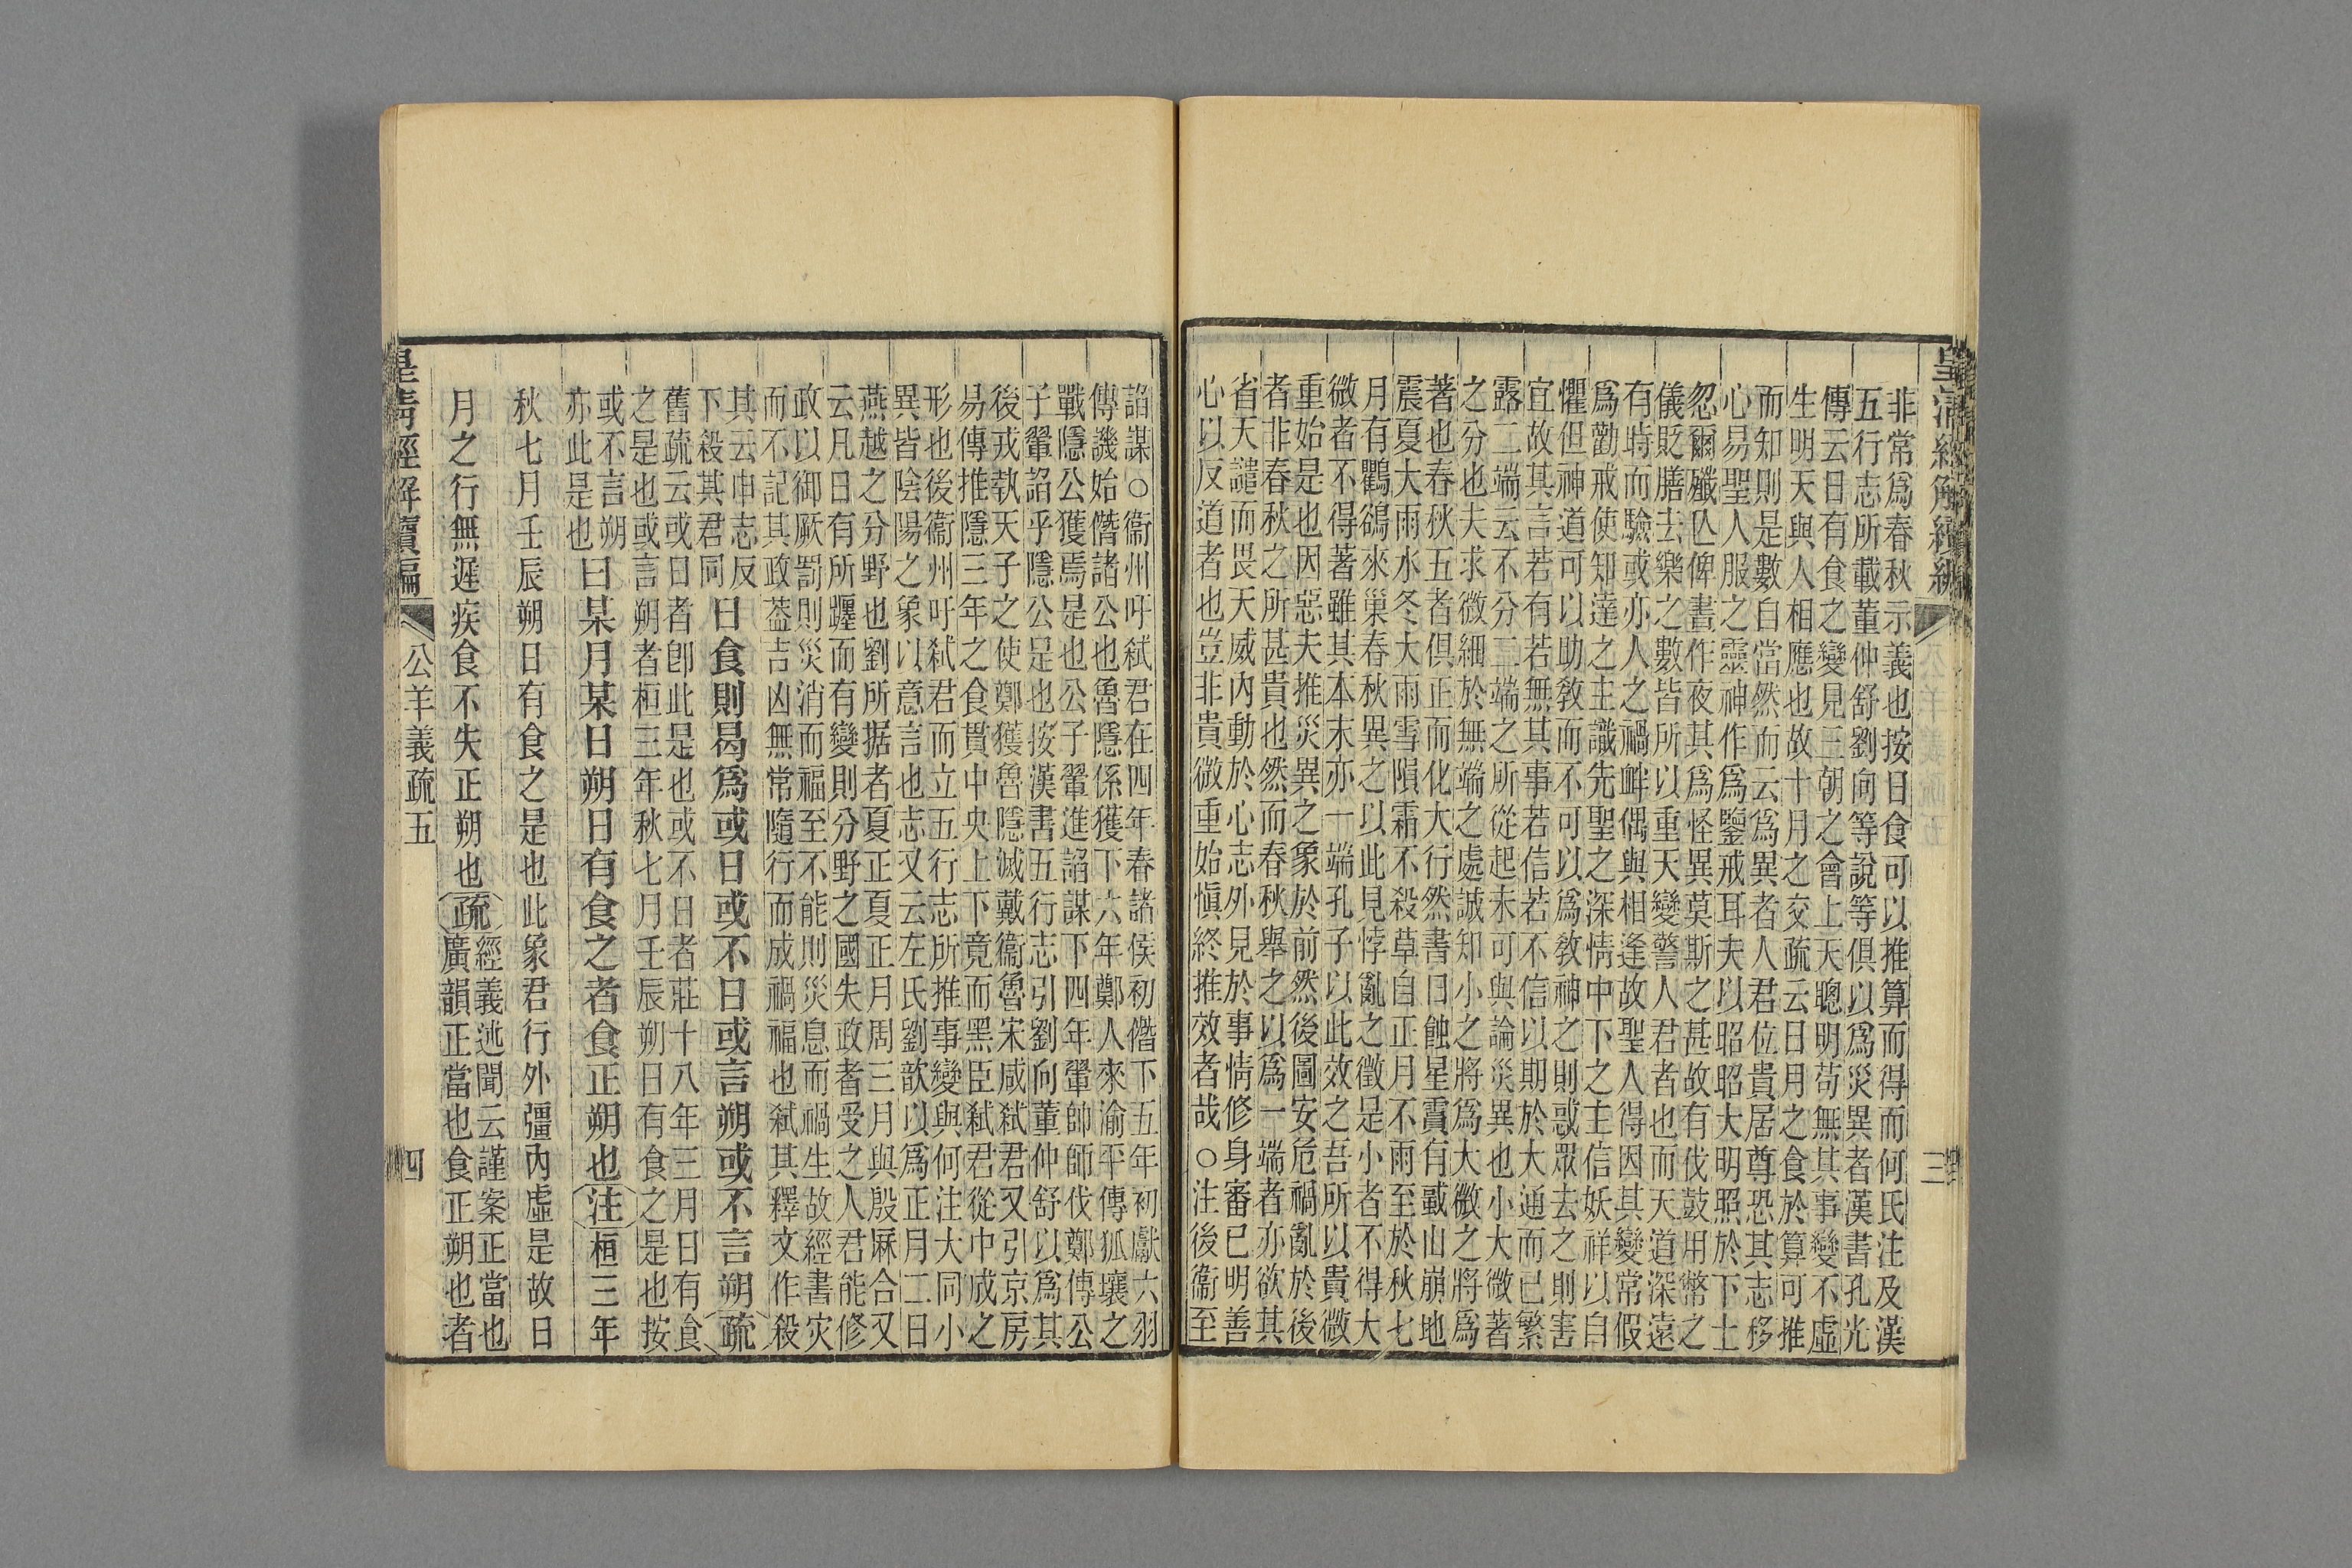 皇清經解續編
三
非常爲春秋示義也按日食可以推算而得而何氏注及漢
五行志所載董仲舒劉向等說等俱以爲災異者漢書孔光
傳云日有食之變見三朝之會上天聰明苟無其事變不虛
生明天與人相應也故十月之交疏云日月之食於算可推
而知則是數自當然而云爲異者人君位貴居尊恐其志移
心易聖人服之靈神作爲鑒戒耳夫以昭昭大明照於下土
忽爾殲亾俾晝作夜其爲怪異莫斯之甚故有伐鼓用幣之
儀貶膳去樂之數皆所以重天變警人君者也而天道深遠
有時而驗或亦人之禍衅偶與相逢故聖人得因其變常假
爲勸戒使知達之主識先聖之深情中下之主信妖祥以自
懼但神道可以助敎而不可以爲敎神之則惑眾去之則害
宜故其言若有若無其事若信若不信以期於大通而已繁
露二端云不分二端之所從起未可與論災異也小大微著
之分也夫求微細於無端之處誠知小之將爲大微之將爲
著也春秋五者俱正而化大行然書日蝕星霣有蜮山崩地
震夏大雨水冬大雨雪隕霜不殺草自正月不雨至於秋七
月有鸛鵒來巢春秋異之以此見悖亂之徵是小者不得大
微者不得著雖其本末亦一端孔子以此效之吾所以貴微
重始是也因惡夫推災異之象於前然後圖安危禍亂於後
者非春秋之所甚貴也然而春秋舉之以爲一端者亦欲其
省天譴而畏天威內動於心志外見於事情修身審己明善
心以反道者也豈非貴微重始愼終推效者哉○注後衞至
諂謀○衞州吁弑君在四年春諸侯初僭下五年初獻六羽
傳譏始僭諸公也魯隱係獲下六年鄭人來渝平傳狐壤之
戰隱公獲焉是也公子翬進諂謀下四年翬帥師伐鄭傳公
子翬諂乎隱公是也按漢書五行志引劉向董仲舒以爲其
後戎執天子之使鄭獲魯隱滅戴衞魯宋咸弑君又引京房
易傳推隱三年之食貫中央上下竟而黑臣弑君從中成之
形也後衞州吁弑君而立五行志所推事變與何注大同小
異皆陰陽之象以意言也志又云左氏劉歆以爲正月二日
燕越之分野也劉所据者夏正夏正月周三月與殷厤合又
云凡日有所躔而有變則分野之國失政者受之人君能修
政以御厥罰則災消而福至不能則災息而禍生故經書灾
而不記其政葢吉凶無常隨行而成禍福也弑其釋文作殺
其云申志反
下殺其君同
日食則曷爲或日或不日或言朔或不言朔疏
舊疏云或日者卽此是也或不日者莊十八年三月日有食
之是也或言朔者桓三年秋七月壬辰朔日有食之是也按
或不言朔
亦此是也
曰某月某日朔日有食之者食正朔也注桓三年
秋七月壬辰朔日有食之是也此象君行外彊內虛是故日
月之行無遲疾食不失正朔也疏
經義述聞云謹案正當也
廣韻正當也食正朔也者
皇淸經解續編
公羊義疏五
四